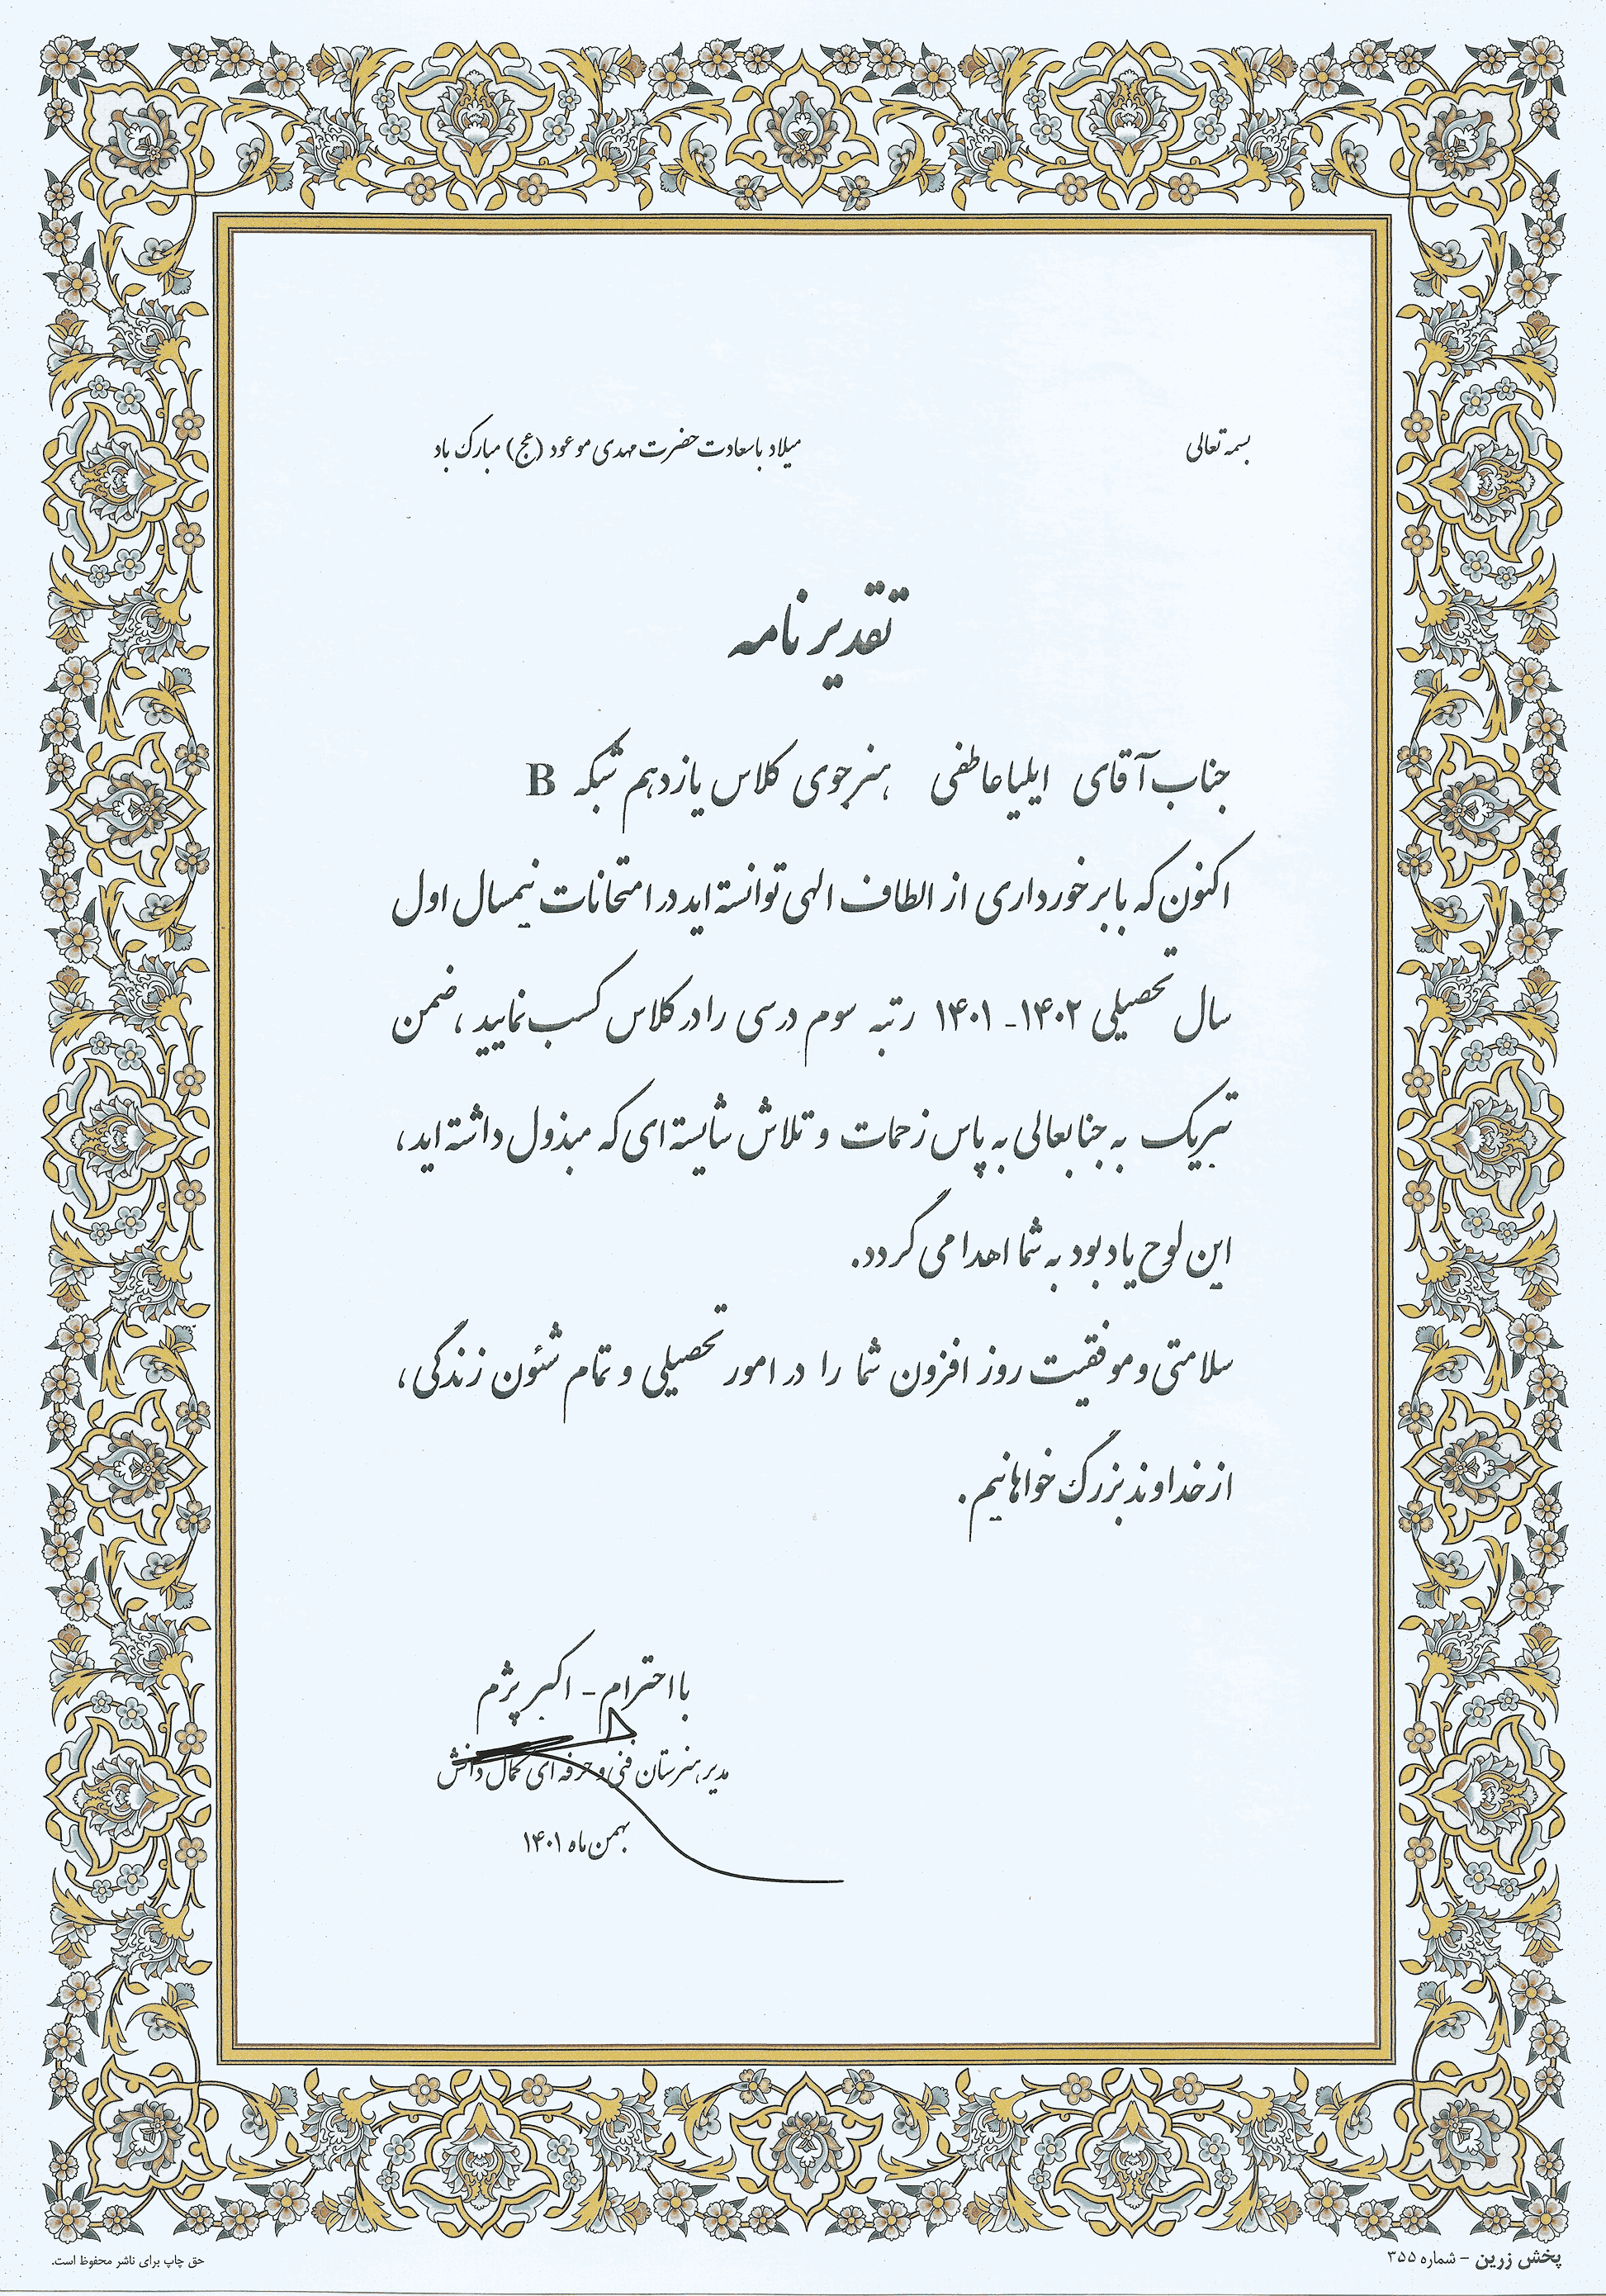 بسمه تعالی
میلاد با سعادت حضرت مهدی موعود (عج) مبارک باد
تقدیرنامه
جناب آقای ایلیا عاطفی هنرجوی کلاس یازدهم شبکه B
اکنون که با برخورداری از الطاف الهی توانسته اید در امتحانات نیمسال اول
سال تحصیلی ۱۴۰۲-۱۴۰۱ رتبه سوم درسی را در کلاس کسب نمایید، ضمن
تبریک به جنابعالی به پاس زحمات و تلاش شایسته ای که مبذول داشته اید،
این لوح یادبود به شما اهدا می گردد.
سلامتی و موفقیت روز افزون شما را در امور تحصیلی و تمام شئون زندگی،
از خداوند بزرگ خواهانیم.
با احترام - اکبر پژم
مدیر هنرستان فنی و حرفه ای کمال دانش
بهمن ماه ۱۴۰۱
پخش زرین - شماره ۳۵۵
حق چاپ برای ناشر محفوظ است.